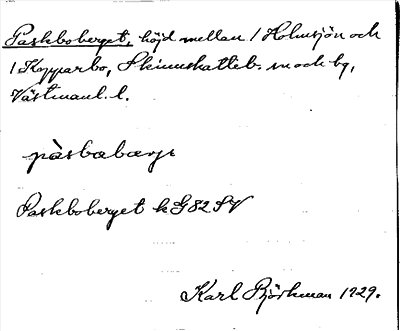 Paskboberget, höjd mellan 1 Holmsjön och
1 Kopparbo, Skinnskatteb. sn och bg,
Västmanl. l.
pàsbɷbærjɛ
Paskboberget k G 82 SV
Karl Björkman 1929.